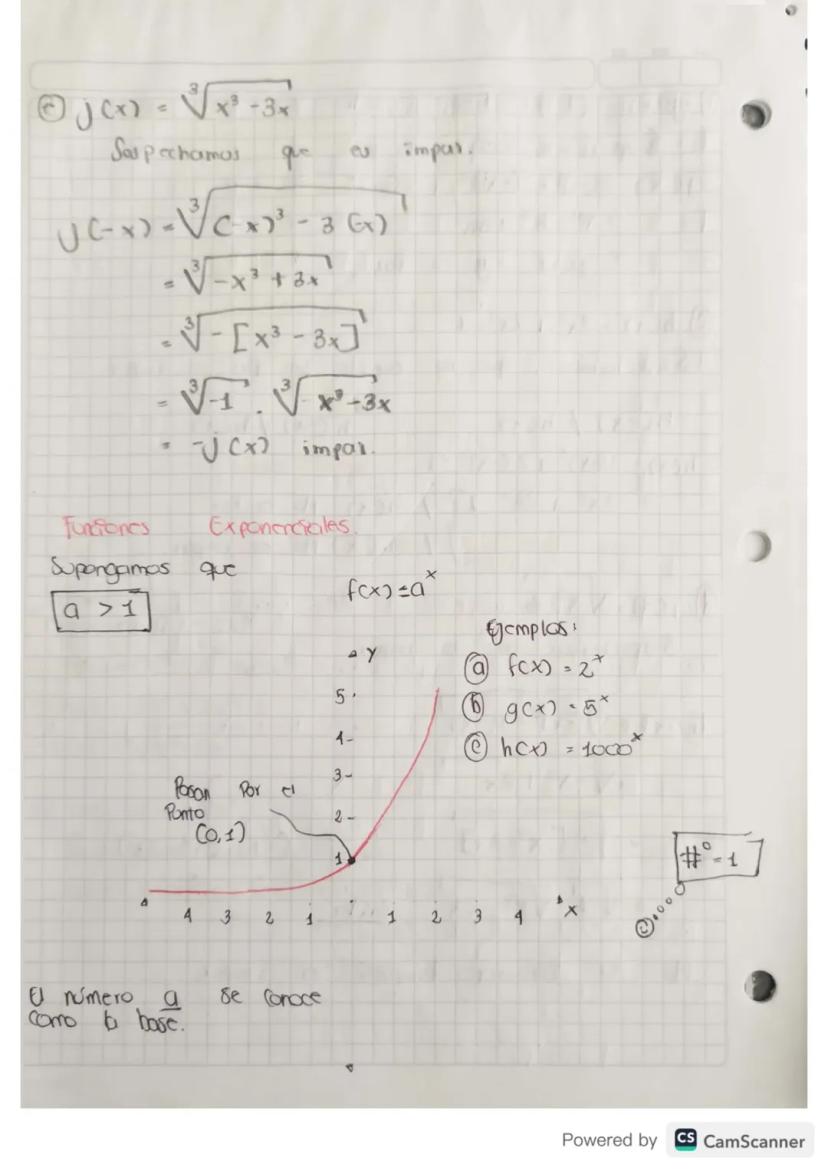 ⓒ j(x) = ∛(x³ - 3x)
Sospechamos que es impar.
j(-x) = ∛((-x)³ - 3(-x))
= ∛(-x³ + 3x)
= ∛(-[x³ - 3x])
= ∛(-1) . ∛(x³ - 3x)
= -j(x) impar.
Funciones Exponenciales.
Supongamos que
a > 1
f(x) = aˣ
Ejemplos:
ⓐ f(x) = 2ˣ
ⓑ g(x) = 5ˣ
ⓒ h(x) = 1000ˣ
y
5
4
3
2
1
Pasan Por el
Punto
(0,1)
#⁰ = 1
4 3 2 1 1 2 3 4 x
El número a se conoce
como la base.
Powered by CS CamScanner